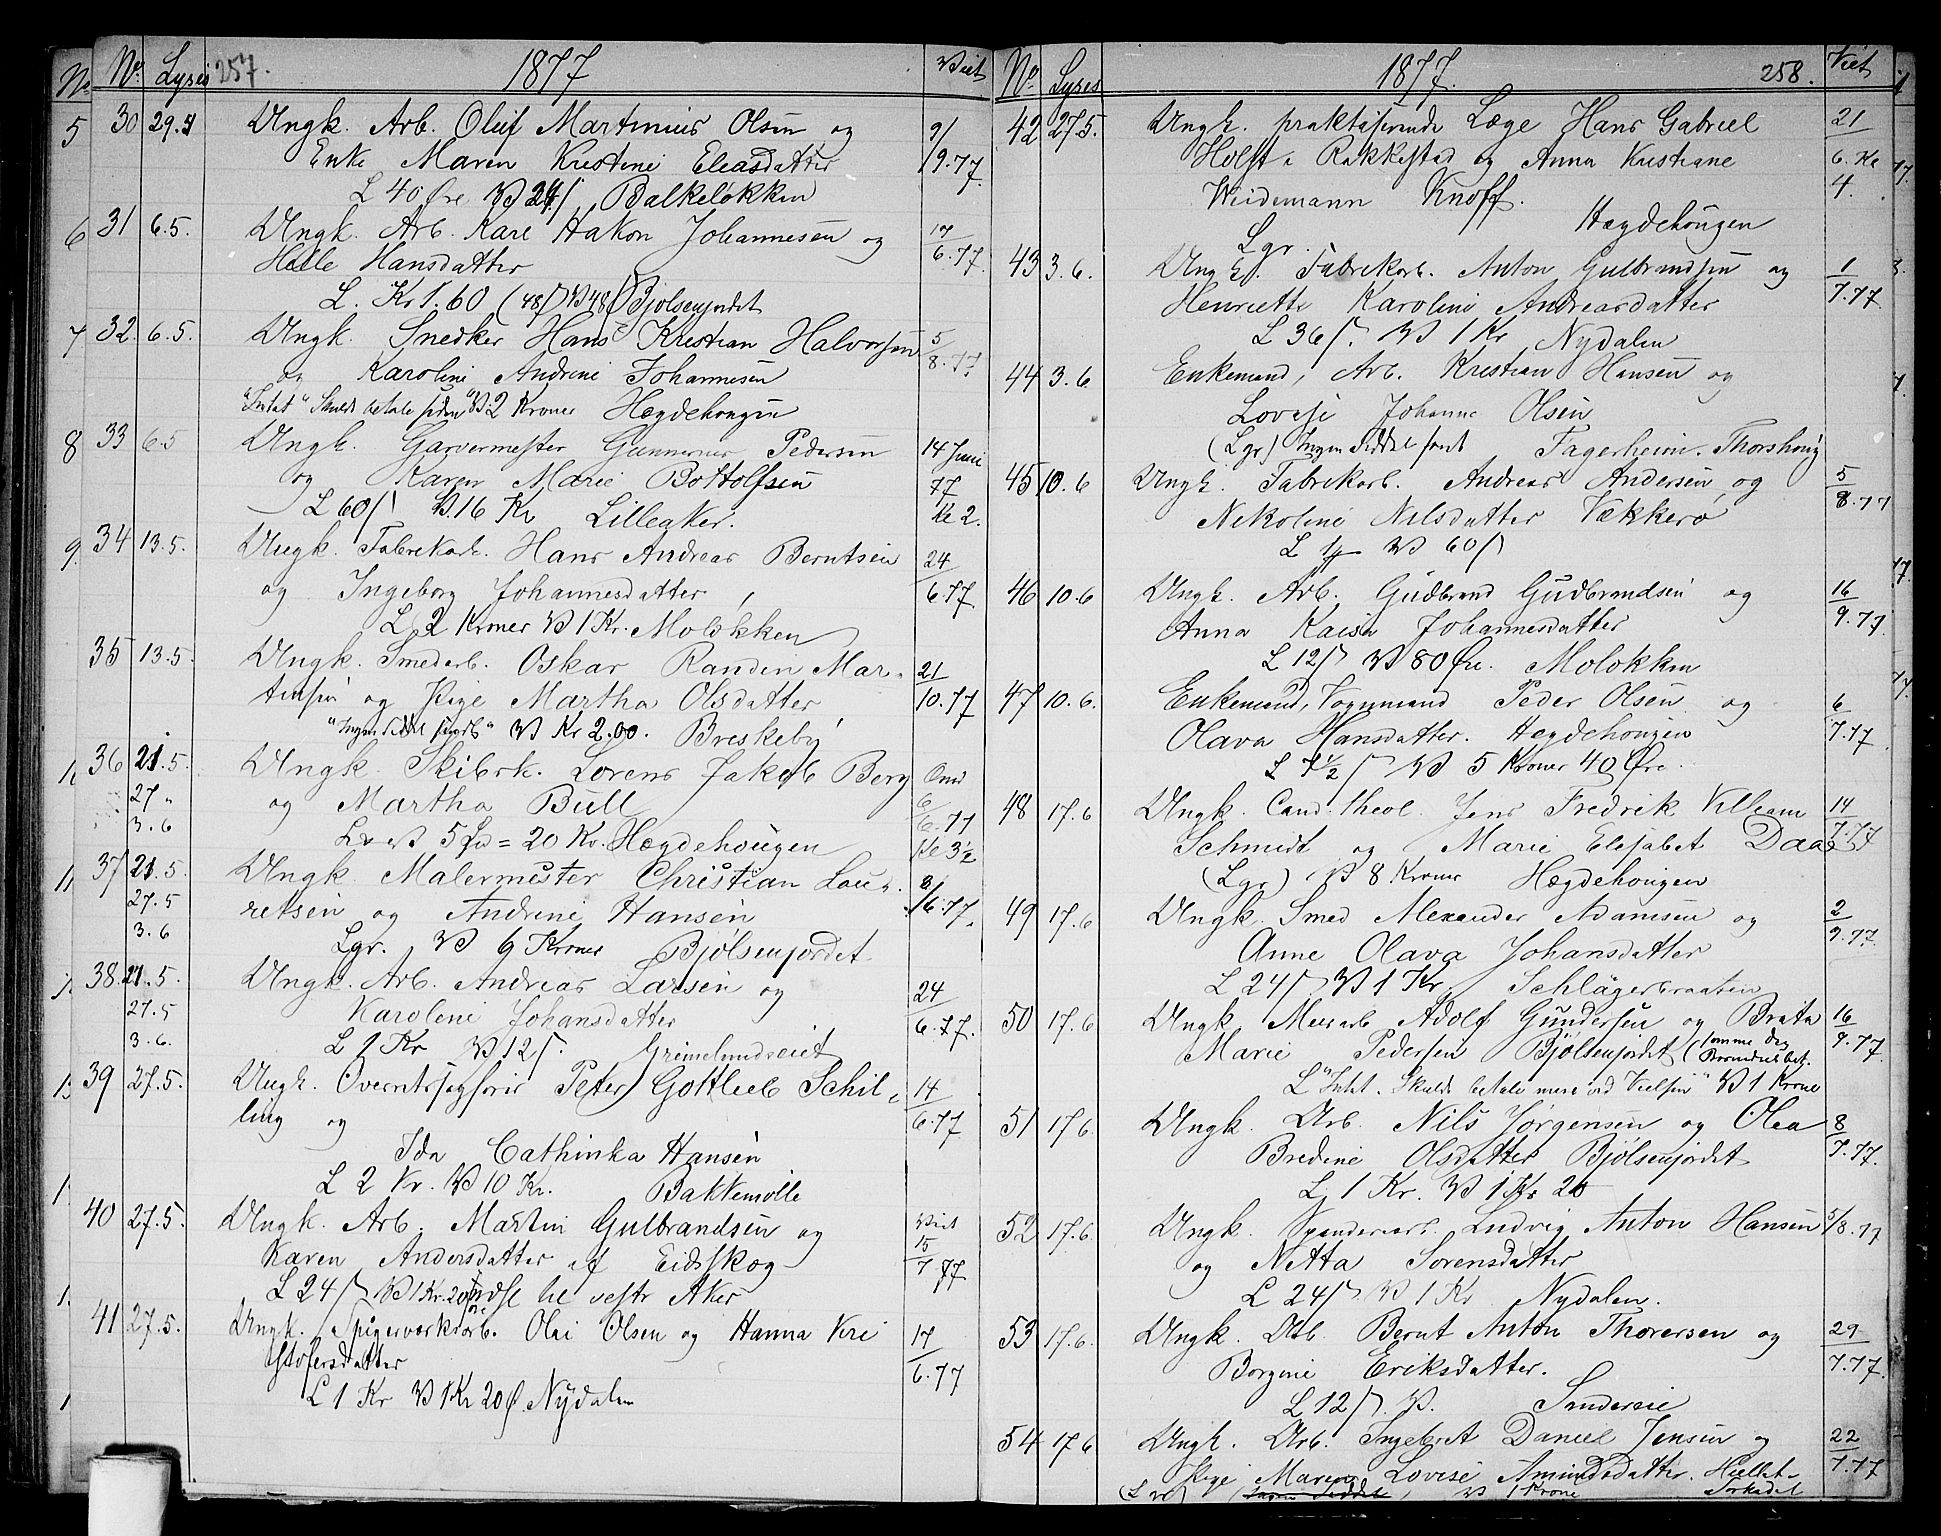 No Lyses 257. 1877 Viet
30 29.4 Ungk. Arb. Oluf Martinius Olsen og 9/
Enke Maren Kristine Eleasdatter 9.77.
L 40 Øre V 24ſ Balkeløkken
31 6.5. Ungk. Arb. Karl Hakon Johannesen og 17
Helle Hansdatter 6.77.
L. Kr 1.60 (48ſ) V 48ſ Bjølsenjordet
32 6.5. Ungk. Snedker Hans Kristian Halvorsen 5
og Karoline Andrine Johannesen 8.77
"Intet" Skulde betale siden" V. 2 Kroner Hægdehougen
33 6.5 Ungk. Garvermester Gunnerius Pedersen 14 Juni
og Karen Marie Bottolfsen 77
L 60ſ V. 16 Kr Lilleaker. Kl 2.
34 13.5. Ungk. Fabrikarb. Hans Andreas Berntsen 24
og Ingeborg Johannesdatter, 6.77
L 2 Kroner V 1 Kr. Moløkken
35 13.5. Ungk. Smedarb. Oskar Randin Mar- 21
tinsen og Pige Martha Olsdatter 10.77
"Ingen Seddel gjords" V Kr 2.00. Briskeby
36 21.5. Ungk. Skibsk. Lorens Jakob Berg Omd
27 " og Martha Bull 6
3.6 L V 5 Spd = 20 Kr. Hægdehougen 6.77 Kl 3½
37 21.5 Ungk. Malermester Christian Lau- 8/
27.5 retsen og Andrine Hansen 6.77.
3.6 Lgr. V 6 Kroner Bjølsenjordet
38 21.5 Ungk. Arb. Andreas Larsen og 24
27.5 Karoline Johansdatter 6.77.
3.6. L 1 Kr V 12ſ. Grimelundseiet
39 27.5. Ungk. Overretssagfører Peter Gottlieb Schil- 14
ling og 6.77
Ida Cathinka Hansen
L 2 Kr. V 10 Kr. Bakkemølle
40 27.5. Ungk. Arb. Martin Gulbrandsen og Viet 15
Karen Andersdatter af Eidsskog 7 77
L 24ſ V 1 Kr. 20 Øre til vestr Aker
41 27.5. Ungk. Spigerværksarb. Olai Olsen og Hanna Kri 17
stofersdatter 6.77
L 1 Kr V 1 Kr 20 Ø. Nydalen
No Lyses 1877. 258. Viet
42 27.5. Ungk. praktiserende Læge Hans Gabriel 21
Holst i Rakkestad og Anna Kristiane 6. Kl
Weidemann Knoff. 4.
Lgr. Hægdehougen
43 3.6. Ungk. Fabrikarb. Anton Gulbrandsen og 1
Henriette Karoline Andreasdatter 7.77
L 36ſ. V 1 Kr Nydalen
44 3.6 Enkemand, Arb. Kristian Hansen og
Lovise Johanne Olsen
(Lgr) Ingen Seddel sent Fagerheim. Thorshoug
45 10.6 Ungk. Fabrikarb. Andreas Andersen og 5
Nikoline Nilsdatter Vækkerø 8.77
L 1 V 60ſ
46 10.6 Ungk. Arb. Gudbrand Gudbrandsen og 16
Anna Kaisa Johannesdatter 9.77.
L 12ſ V 80 Øre. Moløkken
47 10.6. Enkemand, Vognmand Peder Olsen og 6
Olava Hansdatter. Hægdehougen 7.77
L 7½ſ V 5 Kroner 40 Øre.
48 17.6 Ungk. Cand. theol. Jens Fredrik Villiam 14
Schmidt og Marie Elisabet Daae 7.77
(Lgr) V 8 Kroner Hægdehougen
49 17.6 Ungk. Smed Alexander Adamsen og 2
Anne Olava Johansdatter 9.77.
L 24ſ V 1 Kr. Schlägerbraaten
50 17.6 Ungk. Murarb Adolf Gundersen og Brita 16
Marie Pedersen Bjølsenjordet (samme dag 9.77.
L "Intet. Skulde betale mere ved Vielsen" V 1 Krone
51 17.6 Ungk. Arb. Nils Jørgensen og Olea 8
Bredine Olsdatter Bjølsenjordet 7.77.
L 1 Kr. V 1 Kr 20
52 17.6. Ungk. Spinderiarb. Ludvig Anton Hansen 5/8.77
og Netta Sorensdatter
L 24ſ V 1 Kr Nydalen.
53 17.6. Ungk. Arb. Bernt Anton Thoresen og 29
Borgine Eriksdatter. 7.77.
L 12ſ. V. Sandereie
54 17.6 Ungk. Arb. Ingebret Daniel Jensen og 22
Pige Maren Lovise Amundsdatter. 7.77
(L gr) Ingen Seddel, V 1 Krone